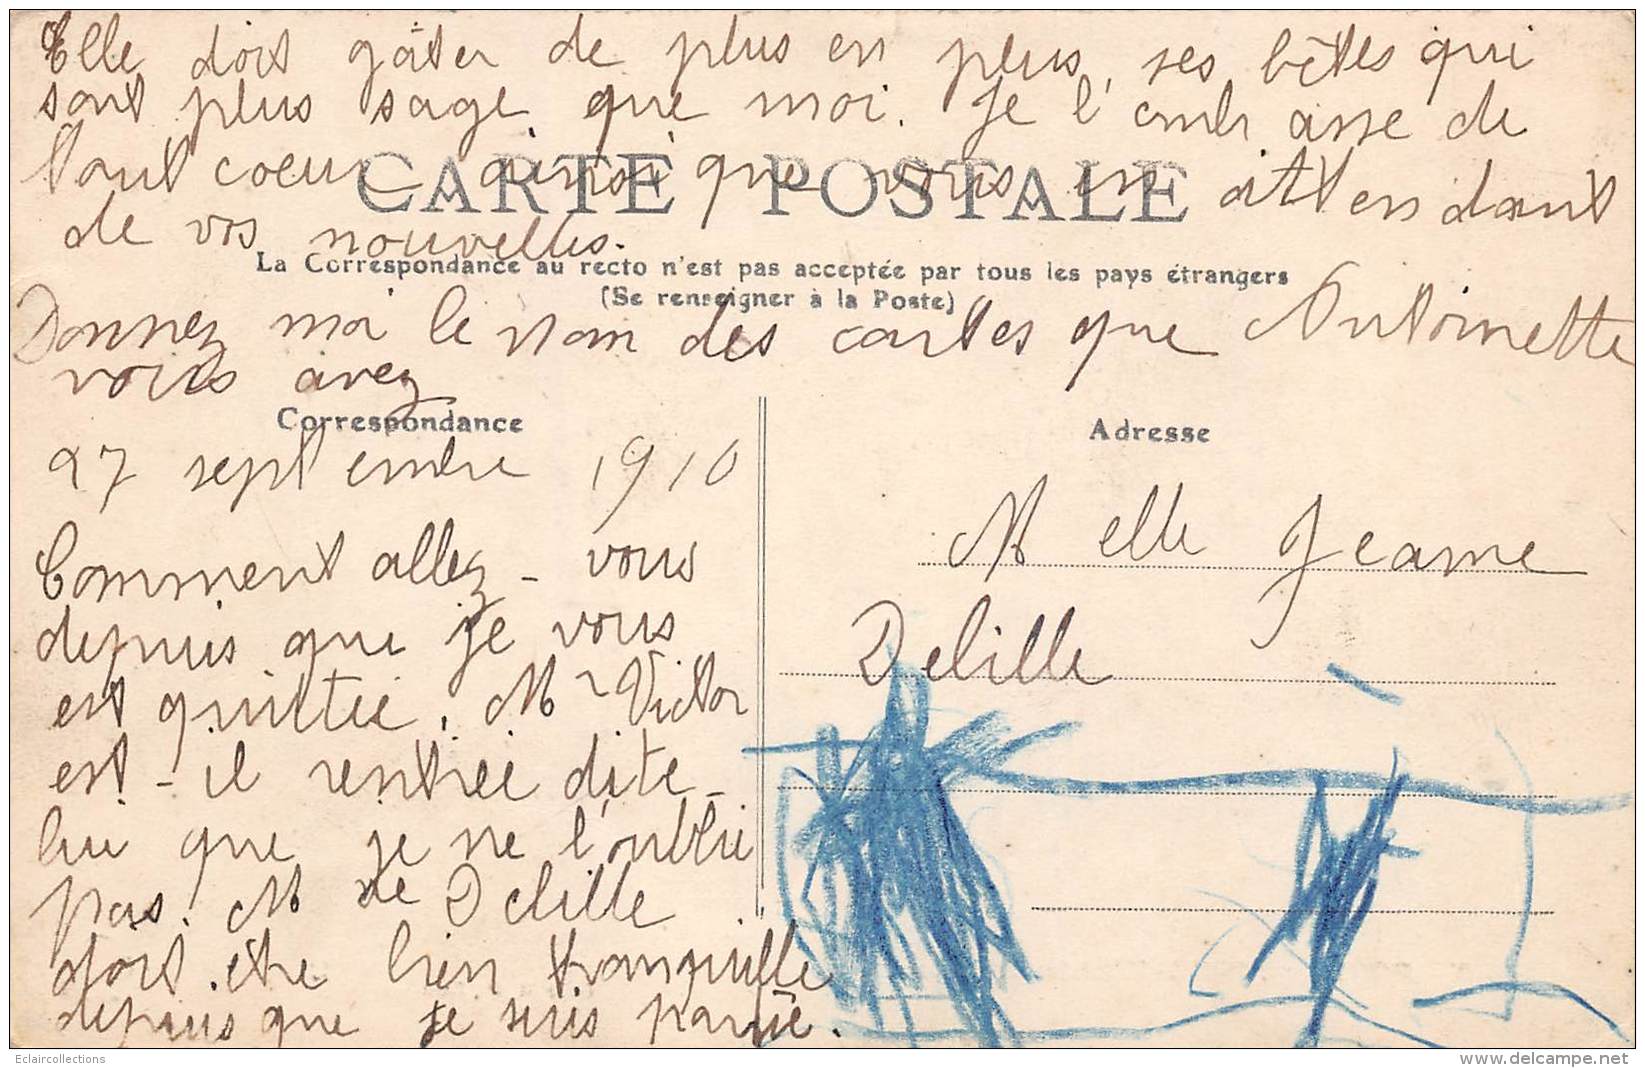 Elle doit gâter de plus en plus, ses bêtes qui
sont plus sage que moi. Je l'embrasse de
tout coeur ainsi que vous en attendant
CARTE POSTALE
de vos nouvelles.
La Correspondance au recto n'est pas acceptée par tous les pays étrangers
(Se renseigner à la Poste)
Donnez moi le nom des cartes que Antoinette
vous avez
Correspondance
27 septembre 1910
Comment allez-vous
depuis que je vous
est quittée. Mr Victor
est-il rentrée dite-
lui que je ne l'oublie
pas. Me Delille
doit être bien tranquille
depuis que je suis partie.
Adresse
Melle Jeanne
Delille
Eclaircollections
www.delcampe.net